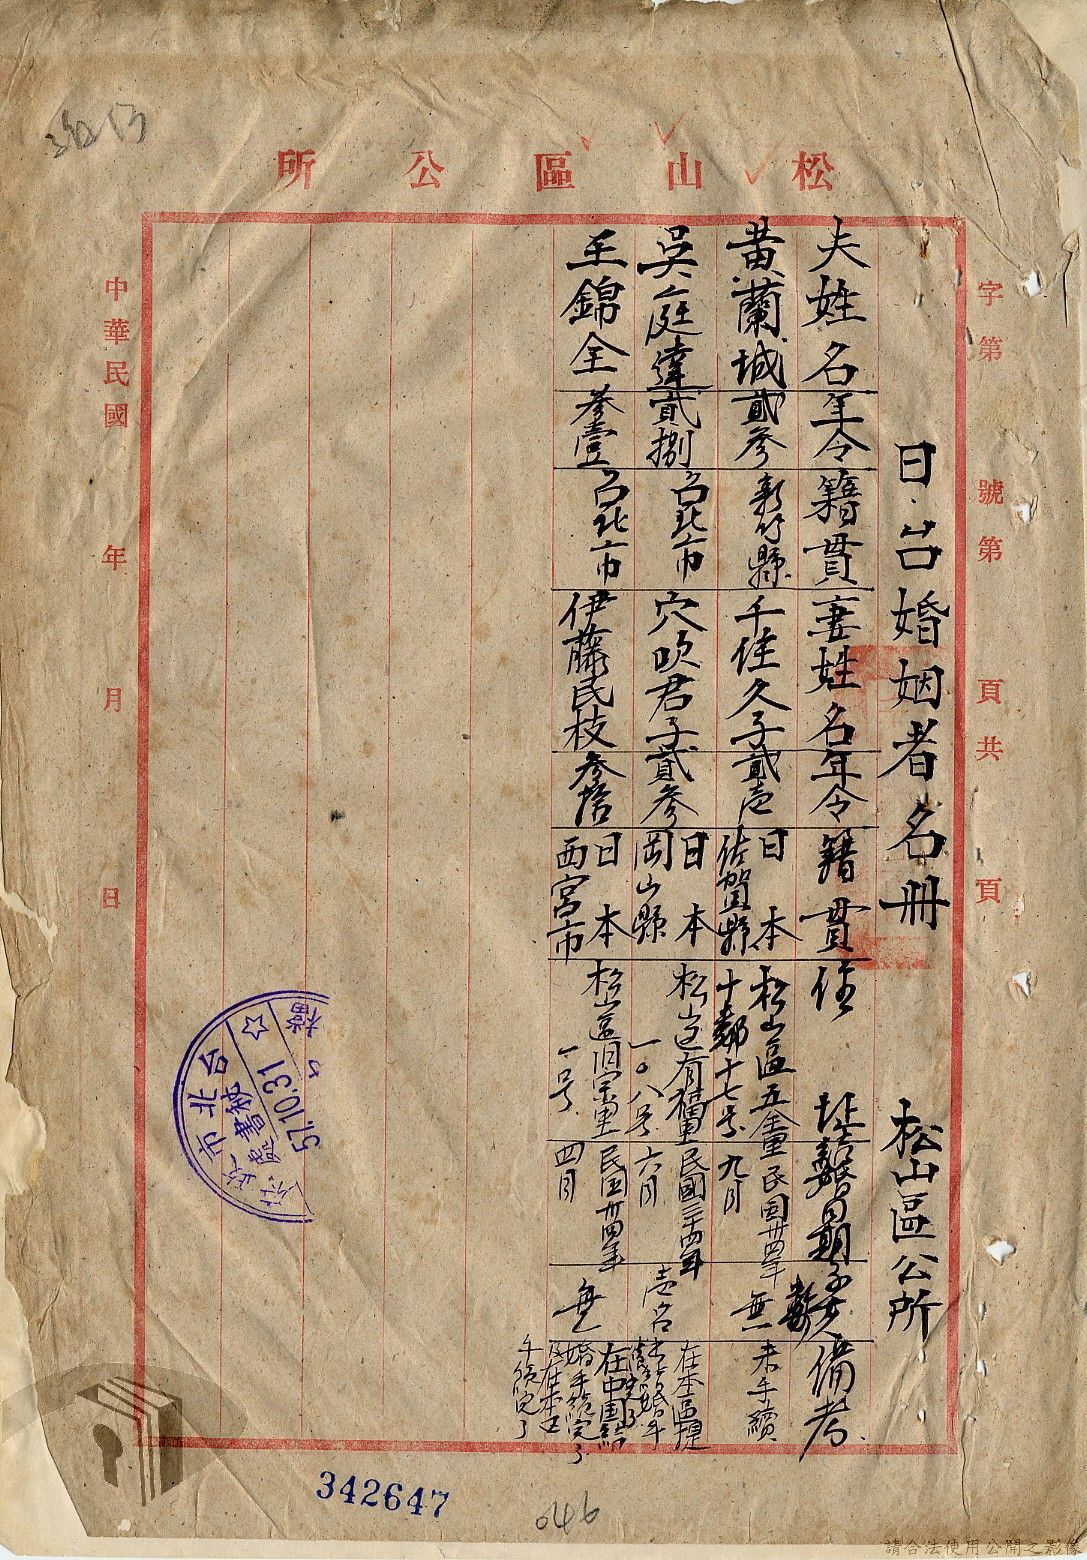 松山區公所
字第 號第 頁共 頁
日·台婚姻者名冊 松山區公所
夫姓名 年令 籍貫 妻姓名 年令 籍貫 住址 結婚日期 子女數 備考
黃蘭城 貳參 新竹縣 千住久子 貳壱 日本佐賀縣 松山區五全里十鄰十七号 民国卅四年九月 無 未手續
吳庭達 貳捌 台北市 穴吹君子 貳參 日本岡山縣 松山区有福里一〇八号 民國三十四年六月 壱名 在本區提
王錦全 參壹 台北市 伊藤民枝 參拾 日本西宮市 松山區旧宗里一号 民国卅四年四月 無 在中国結婚手続完了 手続完了
中華民國 年 月 日
台北市
秘書處
57.10.31
檔
342647
046
請合法使用公開之影像